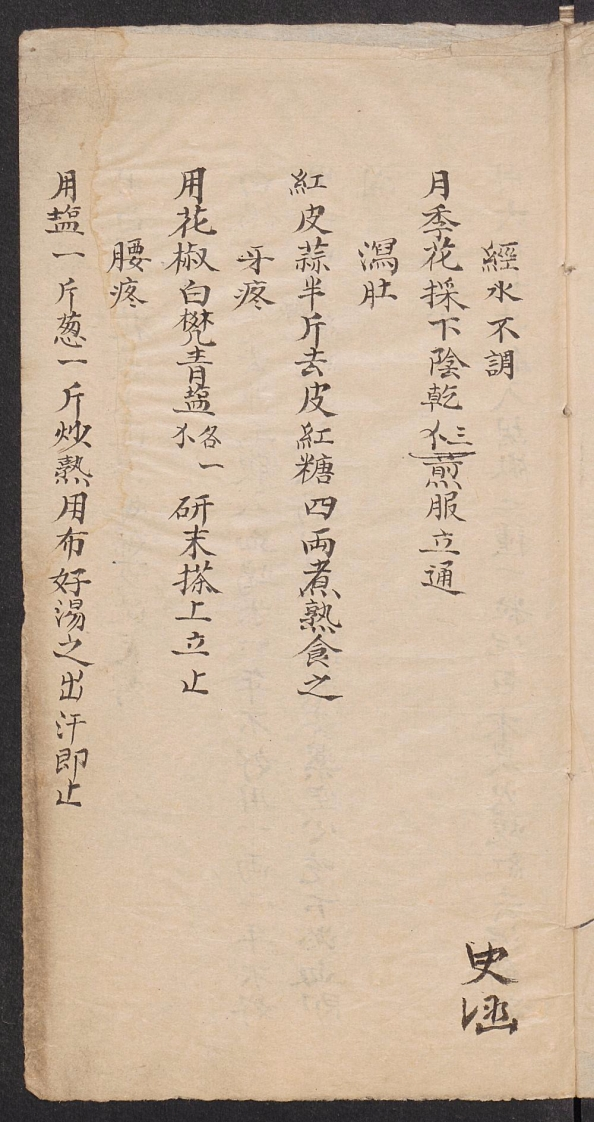 經水不調
月季花採下陰乾三个煎服立通
瀉肚
紅皮蒜半斤去皮紅糖四両煮熟食之
牙疼
用花椒白樊青塩各一个研末搽上立止
腰疼
用塩一斤葱一斤炒熱用布好湯之出汗即止
史